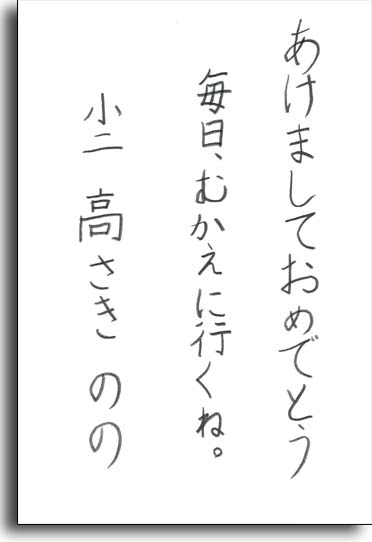 あけましておめでとう
毎日、むかえに行くね。
小二 高さき のの